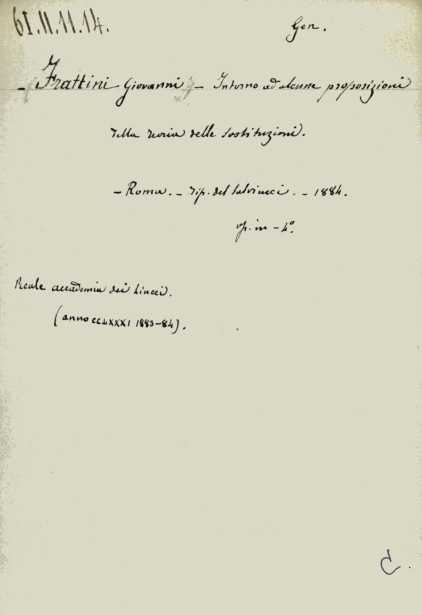 61.11.11.14.
Gen.
- Frattini Giovanni - Intorno ad alcune proposizioni
della teoria delle sostituzioni.
- Roma. - Tip. del Salviucci. - 1884.
op. in - 4°.
Reale accademia dei Lincei.
(anno CCLXXXI 1883-84).
C.